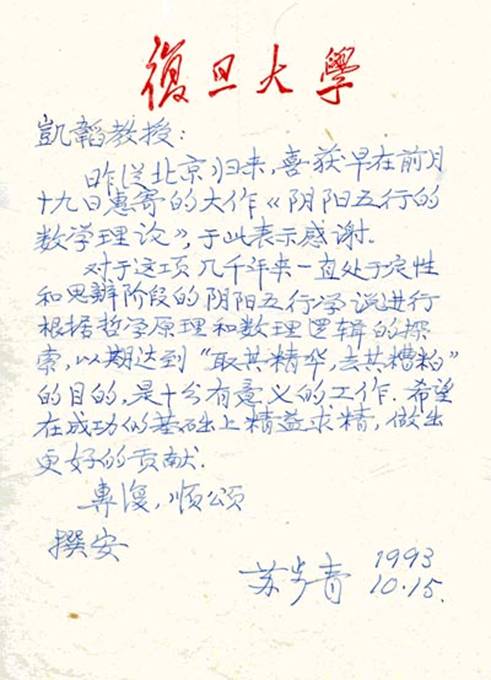 復旦大學
凱韜教授：
昨从北京归来，喜获早在前月
十九日惠寄的大作《阴阳五行的
数学理论》，于此表示感谢。
对于这项几千年来一直处于定性
和思辨阶段的阴阳五行学说进行
根据哲学原理和数理逻辑的探
索，以期达到“取其精华，去其糟粕”
的目的，是十分有意义的工作．希望
在成功的基础上精益求精，做出
更好的贡献．
專復，顺颂
撰安
苏步青 1993
10.15.